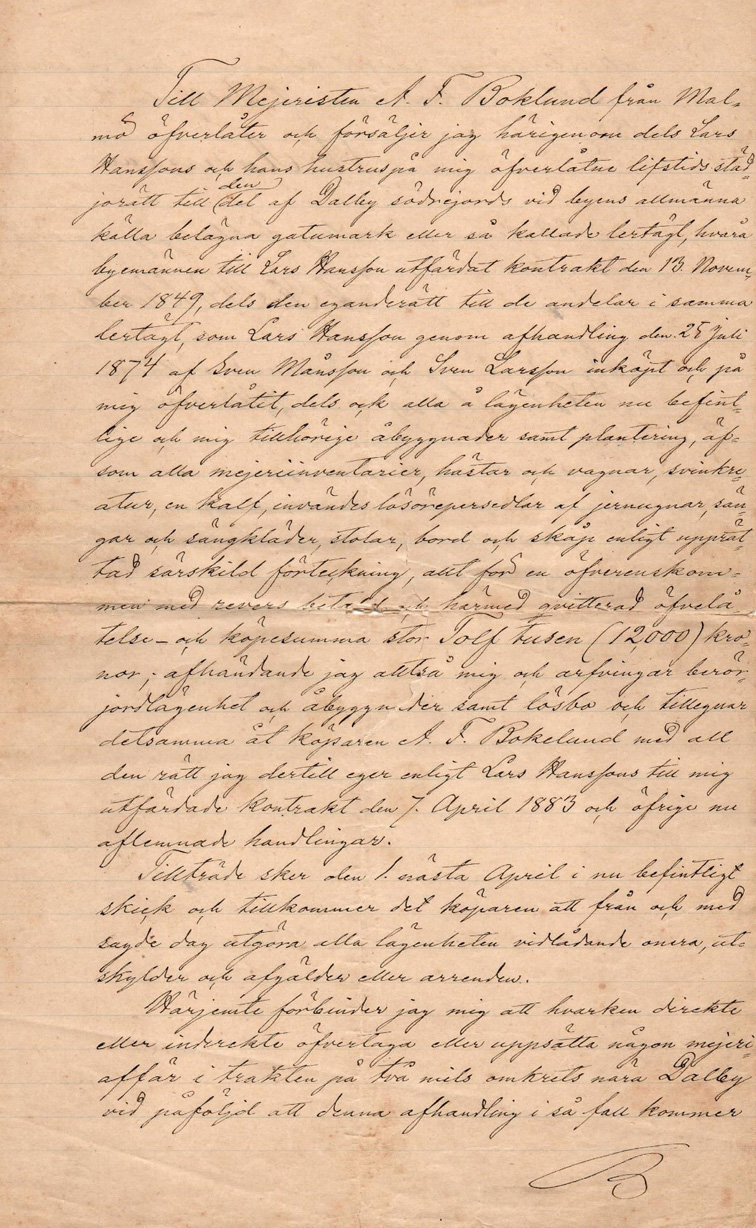 Till Mejeristen A. F. Boklund från Mal-
mö öfverlåter och försäljer jag härigenom dels Lars
Hanssons och hans hustrus på mig öfverlåtne lifstids städ-
jorätt till den del af Dalby södrejords vid byens allmänna
källa belägna gatumark eller så kallade lertägt, hvarå
byemännen till Lars Hansson utfärdat kontrakt den 13. Novem-
ber 1849, dels den eganderätt till de andelar i samma
lertägt, som Lars Hansson genom afhandling den 25 Juli
1874 af Sven Månsson och Sven Larsson inköpt och på
mig öfverlåtit, dels ock alla å lägenheten nu befint-
lige och mig tillhörige åbyggnader samt plantering, äf-
som alla mejeriinventarier, hästar och vagnar, svinkre-
atur, en kalf, invändes lösörepersedlar af jernugnar, sän-
gar och sängkläder, stolar, bord och skåp enligt upprät-
tad särskild förteckning, allt för en öfverenskom-
men med revers betald och härmed qvitterad öfvelå-
telse- och köpesumma stor Tolf tusen (12,000) kro-
nor; afhändande jag alltså mig och arfvingar berör.
jordlägenhet och åbyggnader samt lösbo och tillegnar
detsamma åt köparen A. F. Bokelund med all
den rätt jag dertill eger enligt Lars Hanssons till mig
utfärdade kontrakt den 7. April 1883 och öfrige nu
aflemnade handlingar.
Tillträde sker den 1. nästa April i nu befintligt
skick och tillkommer det köparen att från och med
sagde dag utgöra alla lägenheten vidlådande onera, ut-
skylder och afgälder eller arrenden.
Härjemte förbinder jag mig att hvarken direkte
eller indirekte öfvertaga eller uppsätta någon mejeri-
affär i trakten på två mils omkrets nära Dalby
vid påföljd att denna afhandling i så fall kommer
B